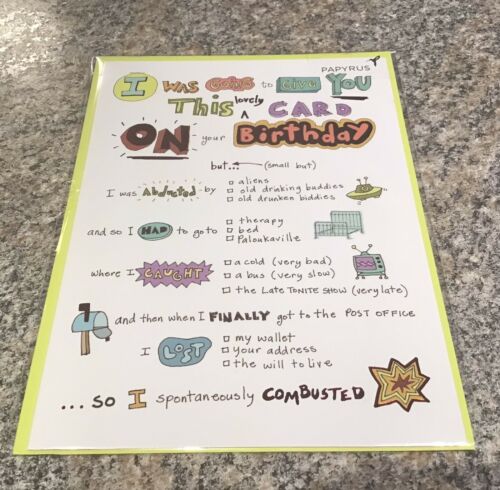 PAPYRUS
I WAS GOING to GIVE YOU
THIS lovely CARD
ON your Birthday
but... (small but)
I was Abducted by
aliens
old drinking buddies
old drunken biddies
and so I HAD to go to
therapy
bed
Palookaville
where I CAUGHT
a cold (very bad)
a bus (very slow)
the LATE TONITE SHOW (very late)
and then when I FINALLY got to the POST OFFICE
I LOST
my wallet
your address
the will to live
... so I spontaneously COMBUSTED